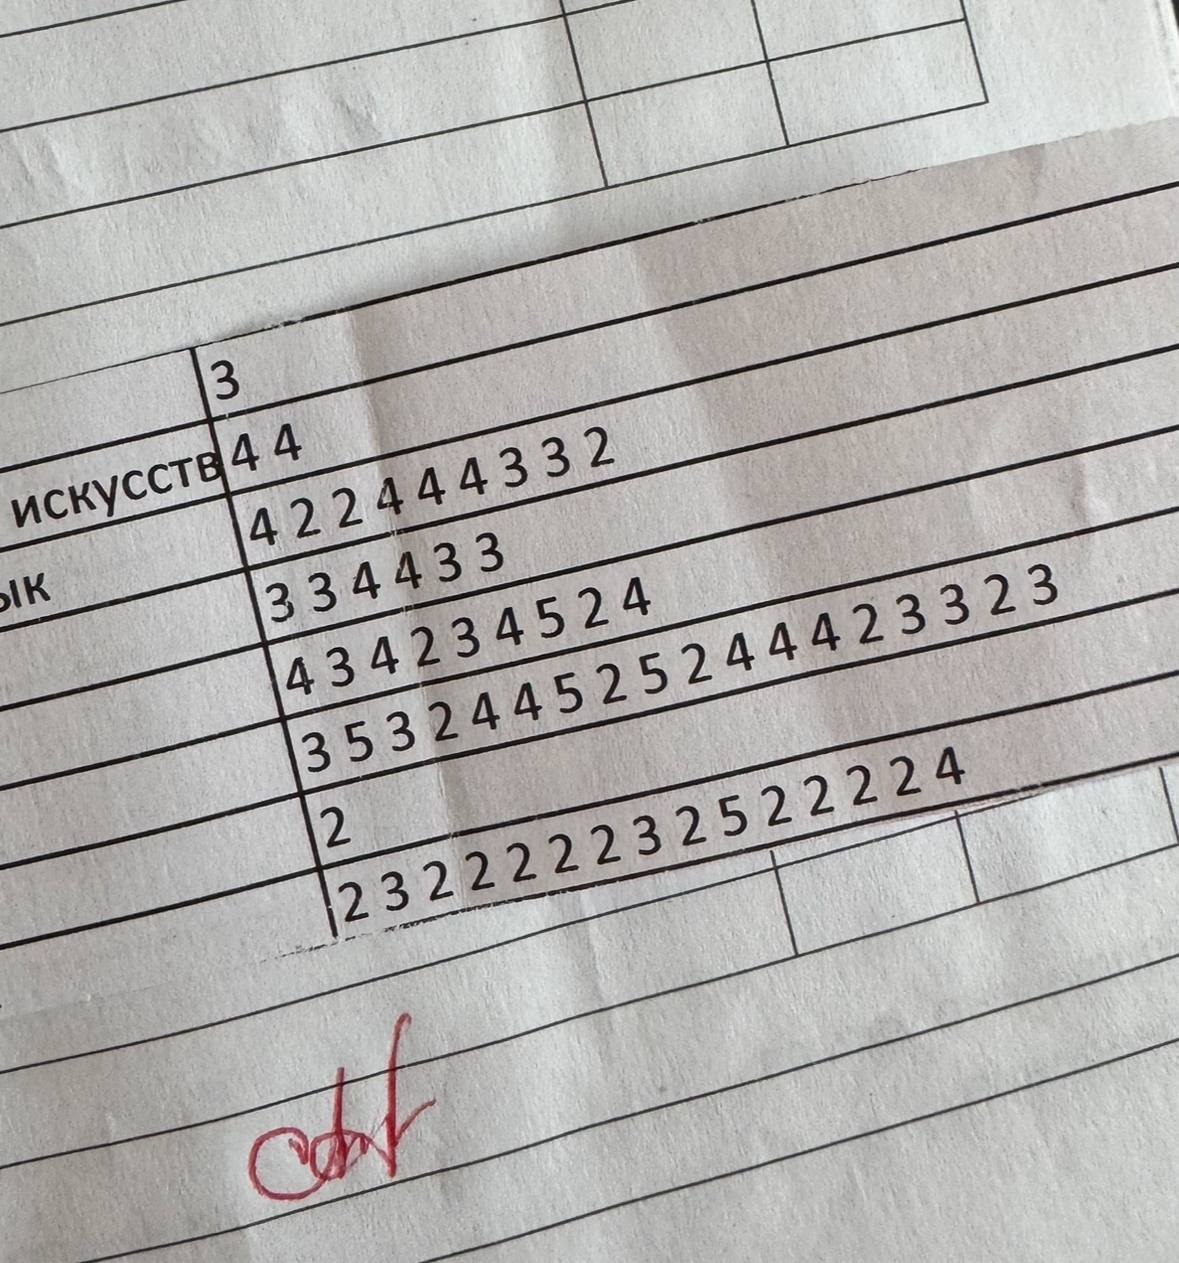 3
искусств 4 4
4 2 2 4 4 4 3 3 2
ык 3 3 4 4 3 3
4 3 4 2 3 4 5 2 4
3 5 3 2 4 4 5 2 5 2 4 4 4 2 3 3 2 3
2
2 3 2 2 2 2 2 3 2 5 2 2 2 2 4